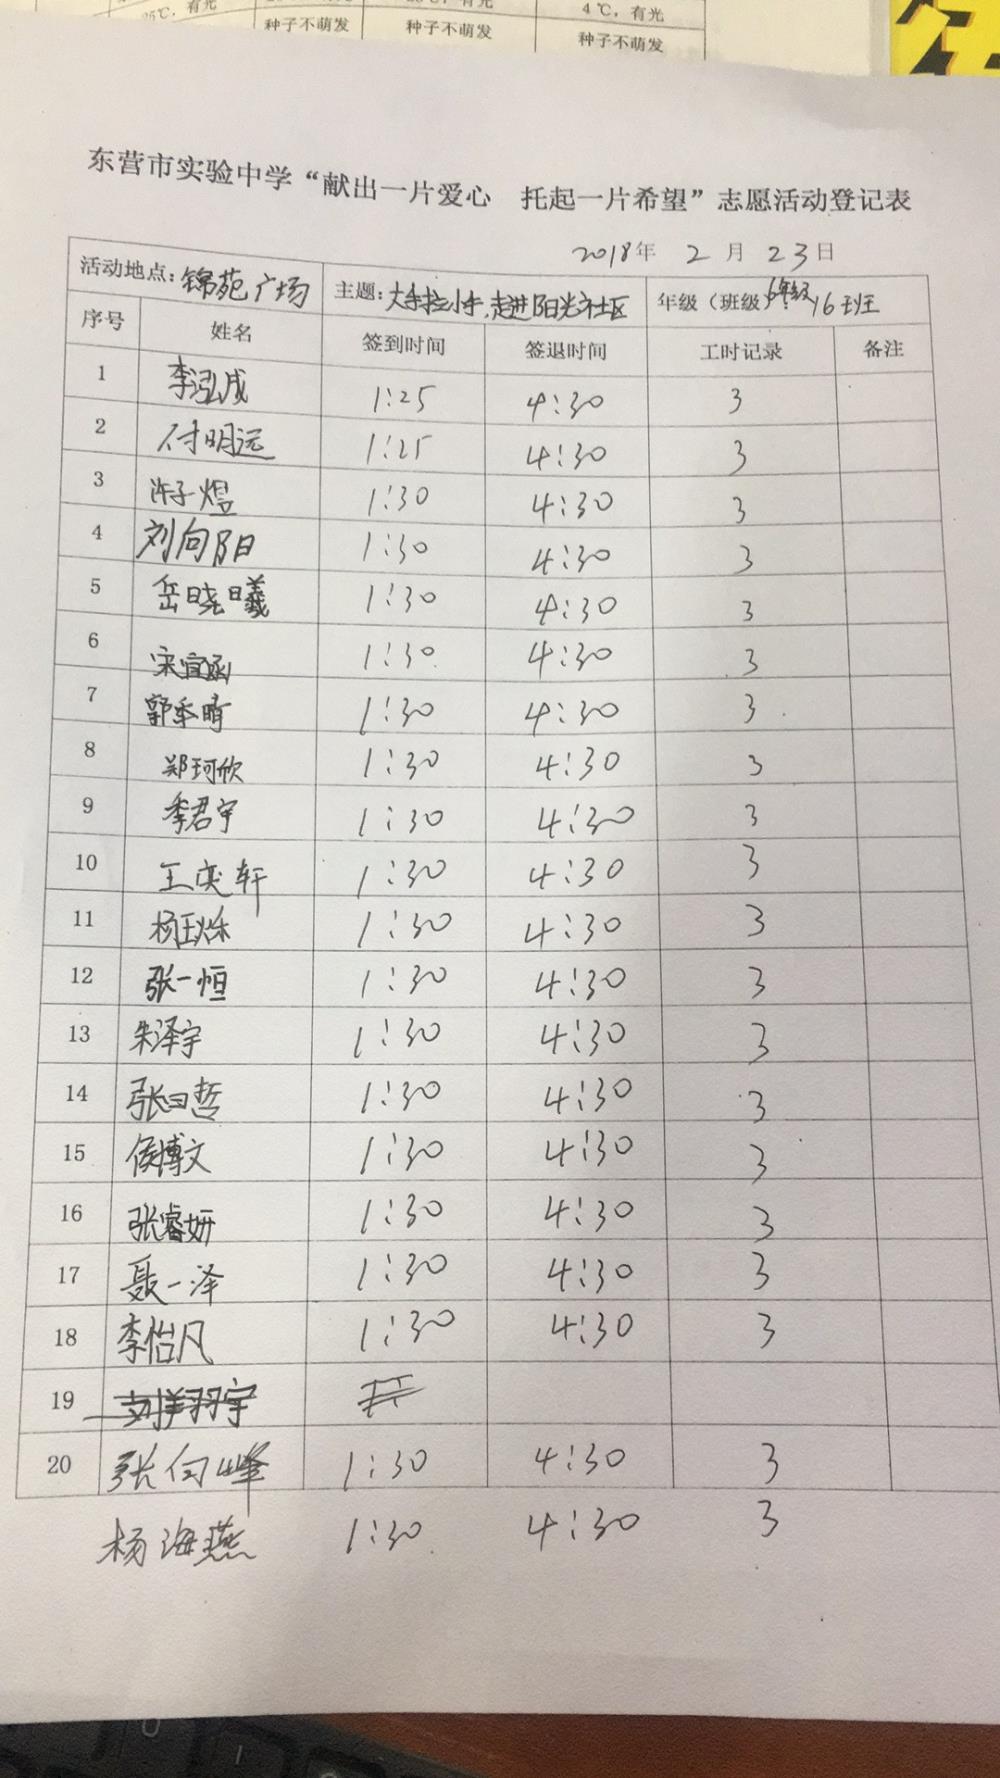 25℃，有光 4℃，有光
种子不萌发 种子不萌发 种子不萌发
东营市实验中学“献出一片爱心 托起一片希望”志愿活动登记表
2018年 2月 23日
活动地点：锦苑广场 主题：大手拉小手，走进阳光社区 年级（班级）6年级16班
序号 姓名 签到时间 签退时间 工时记录 备注
1 李泓成 1:25 4:30 3
2 付明远 1:25 4:30 3
3 许子煜 1:30 4:30 3
4 刘向阳 1:30 4:30 3
5 岳晓曦 1:30 4:30 3
6 宋宜函 1:30 4:30 3
7 郭季晴 1:30 4:30 3
8 郑珂欣 1:30 4:30 3
9 季君宇 1:30 4:30 3
10 王奕轩 1:30 4:30 3
11 杨玉烁 1:30 4:30 3
12 张一恒 1:30 4:30 3
13 朱泽宇 1:30 4:30 3
14 张曰哲 1:30 4:30 3
15 侯博文 1:30 4:30 3
16 张睿妍 1:30 4:30 3
17 聂一泽 1:30 4:30 3
18 李怡凡 1:30 4:30 3
19
20 张向峰 1:30 4:30 3
杨海燕 1:30 4:30 3